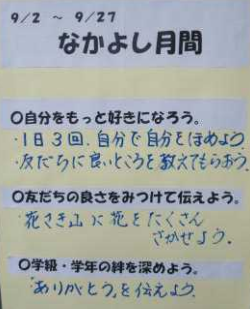 9/2 ～ 9/27
なかよし月間
○自分をもっと好きになろう。
・1日3回、自分で自分をほめよう。
・友だちに良いところを教えてもらおう。
○友だちの良さをみつけて伝えよう。
花さき山に花をたくさん
さかせよう。
○学級・学年の絆を深めよう。
「ありがとう」を伝えよう